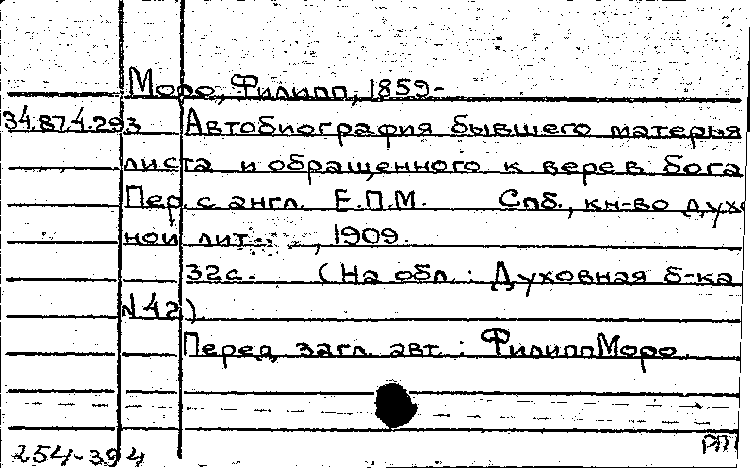 Моро, Филипп, 1859-
34.87.4.293 Автобиография бывшего матерья
листа и обращенного к вере в бога
Пер. с англ. Е.П.М. Спб., кн-во дух
ной лит., 1909.
32с. (На обл.: Духовная б-ка
N 42)
Перед загл. авт.: Филипп Моро
254-394 РП